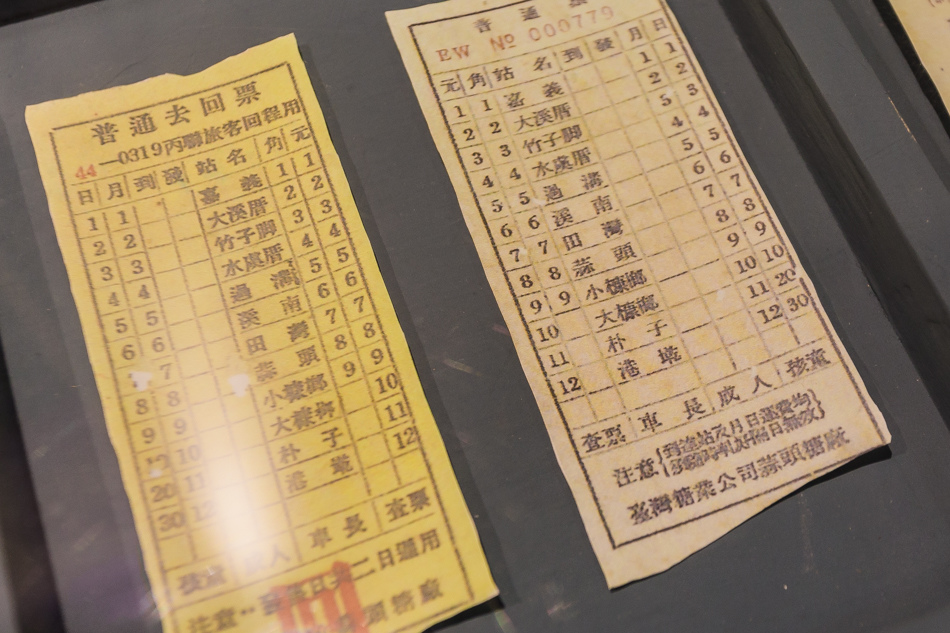 普通去回票
44—0319內聯旅客回程用
日 月 到 發 站名 角 元
1 1 嘉義 1 1
2 2 大溪厝 2 2
3 3 竹子脚 3 3
4 4 水處厝 4 4
5 5 過溝 5 5
6 6 溪南 6 6
7 田灣 7 7
8 8 蒜頭 8 8
9 9 小槺榔 9 9
10 10 大槺榔 10
20 11 朴子 11
30 12 港墘 12
成人 車長 查票
注意 二日通用
頭糖廠
普通
EW № 000779
元 角 站名 到 發 月 日
1 1 嘉義 1 1
2 2 大溪厝 2 2
3 3 竹子脚 3 3
4 4 水處厝 4 4
5 5 過溝 5 5
6 6 溪南 6 6
7 7 田灣 7 7
8 8 蒜頭 8 8
9 9 小槺榔 9 9
10 大槺榔 10 10
11 朴子 11 20
12 港墘 12 30
查票 車長 成人 孩童
注意
臺灣糖業公司蒜頭糖廠